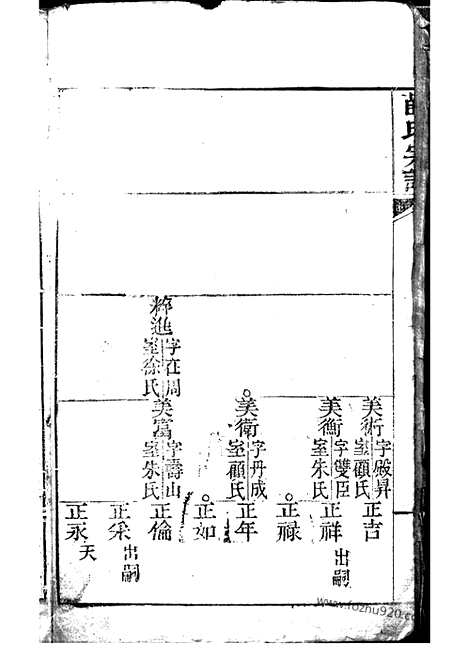 氏宗譜
美術 字殿昇 室顧氏 正吉
美衡 字雙臣 室朱氏 正祥 出嗣
正祿
美衛 字丹成 室顧氏 正年
正如
粹進 字在周 室徐氏 美富 字壽山 室朱氏 正倫
正采 出嗣
正永 夭
www.fozhu920.com